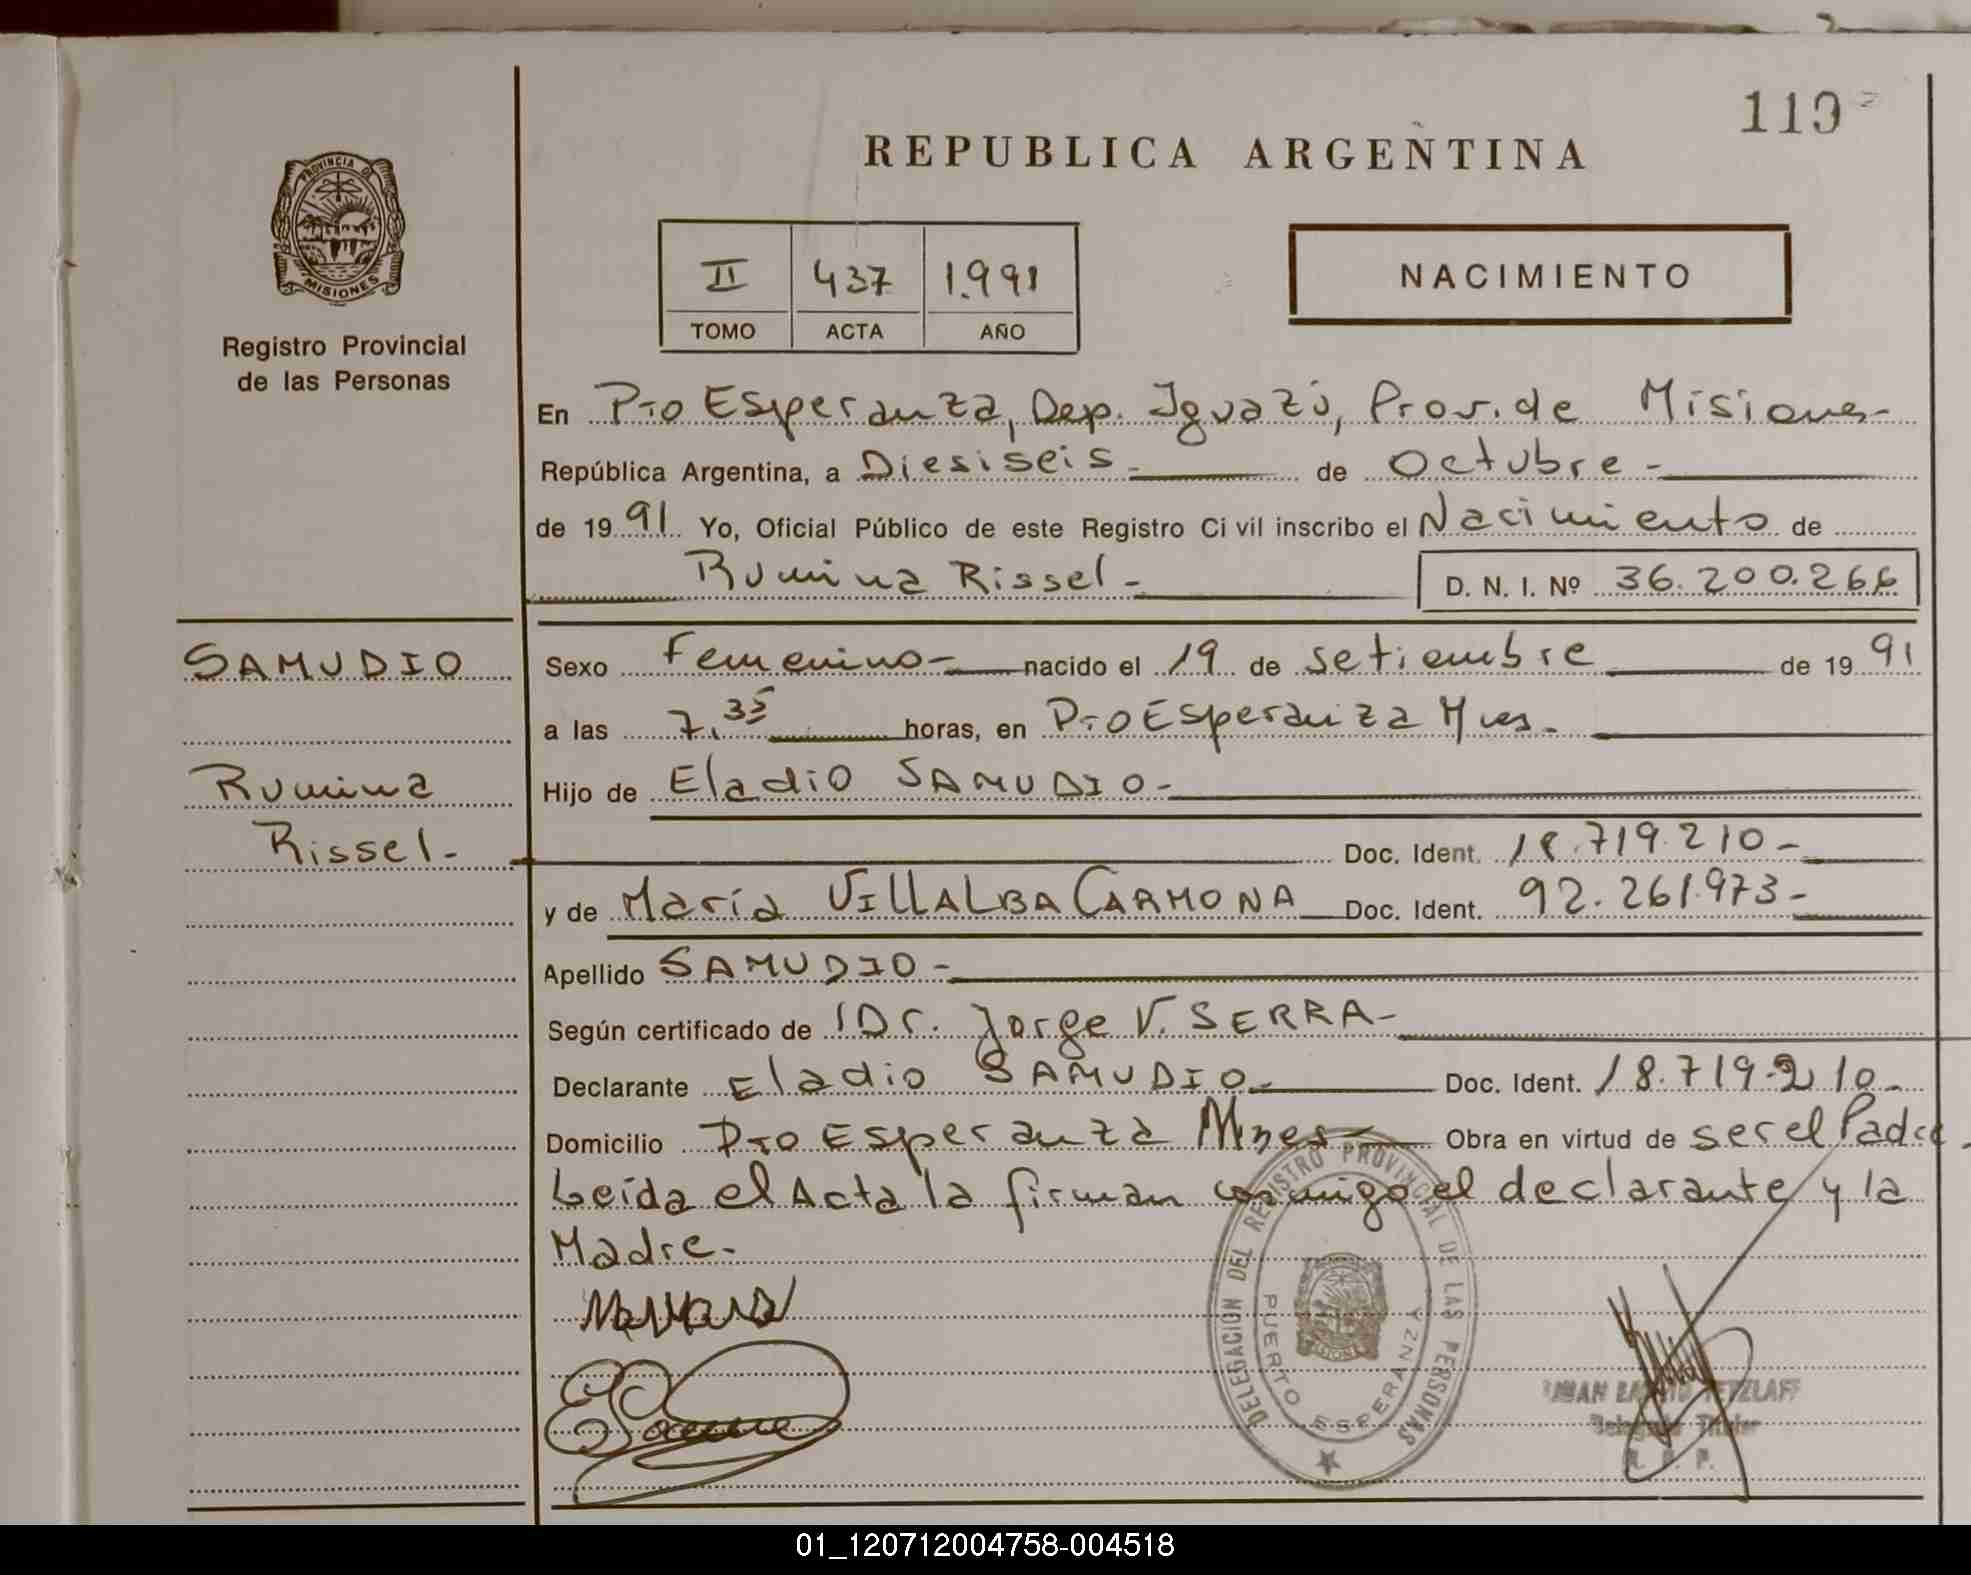 119
REPUBLICA ARGENTINA
PROVINCIA DE
MISIONES
Registro Provincial
de las Personas
II 437 1.991
TOMO ACTA AÑO
NACIMIENTO
En Pto Esperanza, Dep. Iguazú, Prov. de Misiones
República Argentina, a Diesiseis - de Octubre -
de 1991 Yo, Oficial Público de este Registro Civil inscribo el Nacimiento de
Rumina Rissel - D. N. I. Nº 36.200.266
SAMUDIO
Rumina
Rissel -
Sexo Femenino - nacido el 19 de setiembre de 1991
a las 7,35 horas, en Pto Esperanza Mnes -
Hijo de Eladio SAMUDIO -
Doc. Ident. 18.719.210 -
y de María VILLALBA CARMONA Doc. Ident. 92.261.973 -
Apellido SAMUDIO -
Según certificado de Dr. Jorge V. SERRA -
Declarante Eladio SAMUDIO - Doc. Ident. 18.719.210 -
Domicilio Pto Esperanza Mnes - Obra en virtud de ser el Padre -
Leída el Acta la firman conmigo el declarante y la
Madre -
DELEGACION DEL REGISTRO PROVINCIAL DE LAS PERSONAS
PUERTO ESPERANZA
TETZLAFF
Delegado Titular
R. P. P.
01_120712004758-004518